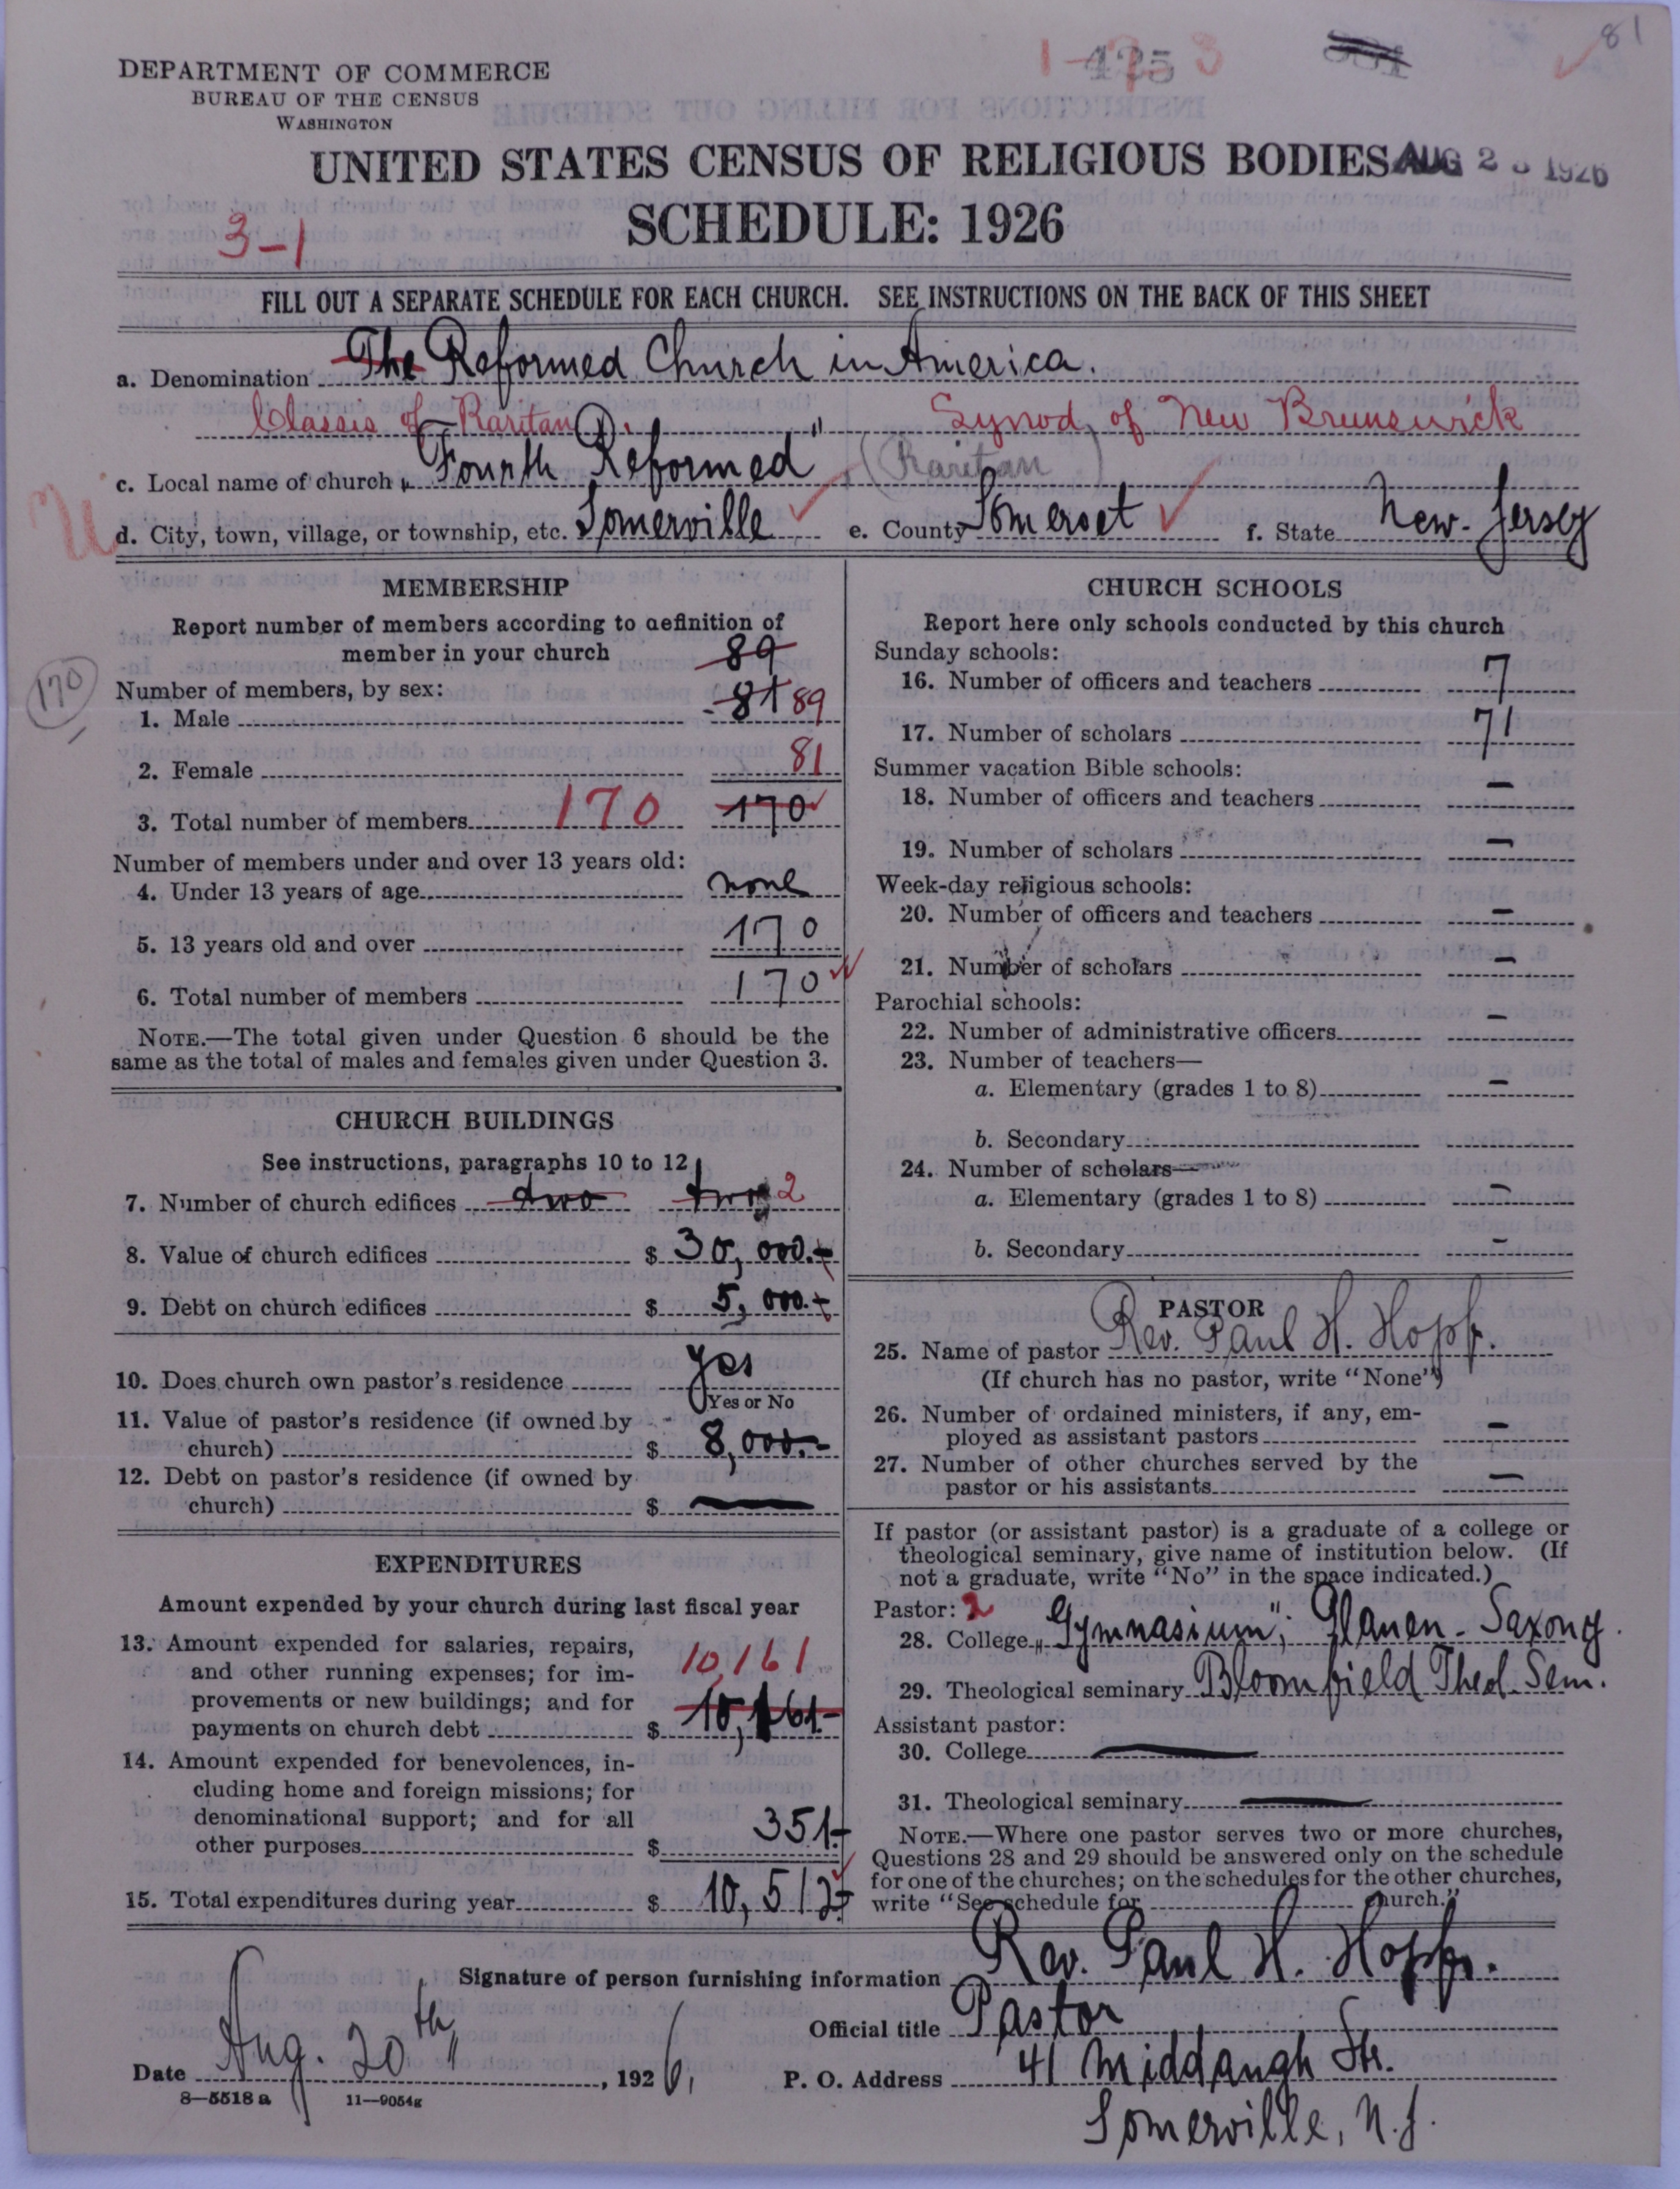 81
1-2 3
425
DEPARTMENT OF COMMERCE
BUREAU OF THE CENSUS
WASHINGTON
UNITED STATES CENSUS OF RELIGIOUS BODIES AUG 23 1926
SCHEDULE: 1926
3-1
FILL OUT A SEPARATE SCHEDULE FOR EACH CHURCH. SEE INSTRUCTIONS ON THE BACK OF THIS SHEET
a. Denomination The Reformed Church in America.
Classis of Raritan Synod of New Brunswick
c. Local name of church "Fourth Reformed" (Raritan)
d. City, town, village, or township, etc. Somerville e. County Somerset f. State New-Jersey
MEMBERSHIP
Report number of members according to definition of
member in your church
89
170
Number of members, by sex:
1. Male 81 89
2. Female 81
3. Total number of members 170 170
Number of members under and over 13 years old:
4. Under 13 years of age none
5. 13 years old and over 170
6. Total number of members 170
NOTE.—The total given under Question 6 should be the
same as the total of males and females given under Question 3.
CHURCH BUILDINGS
See instructions, paragraphs 10 to 12
7. Number of church edifices two two 2
8. Value of church edifices $ 30,000.-
9. Debt on church edifices $ 5,000.-
10. Does church own pastor's residence yes
Yes or No
11. Value of pastor's residence (if owned by
church) $ 8,000.-
12. Debt on pastor's residence (if owned by
church) $ —
EXPENDITURES
Amount expended by your church during last fiscal year
13. Amount expended for salaries, repairs,
and other running expenses; for im-
provements or new buildings; and for
payments on church debt $ 10,161.-
10,161
14. Amount expended for benevolences, in-
cluding home and foreign missions; for
denominational support; and for all
other purposes $ 351.-
15. Total expenditures during year $ 10,512.-
CHURCH SCHOOLS
Report here only schools conducted by this church
Sunday schools:
16. Number of officers and teachers 7
17. Number of scholars 71
Summer vacation Bible schools:
18. Number of officers and teachers —
19. Number of scholars —
Week-day religious schools:
20. Number of officers and teachers —
21. Number of scholars —
Parochial schools:
22. Number of administrative officers —
23. Number of teachers—
a. Elementary (grades 1 to 8) —
b. Secondary
24. Number of scholars—
a. Elementary (grades 1 to 8) —
b. Secondary —
PASTOR
25. Name of pastor Rev. Paul H. Hopf.
(If church has no pastor, write "None")
26. Number of ordained ministers, if any, em-
ployed as assistant pastors —
27. Number of other churches served by the
pastor or his assistants —
If pastor (or assistant pastor) is a graduate of a college or
theological seminary, give name of institution below. (If
not a graduate, write "No" in the space indicated.)
Pastor: 2
28. College "Gymnasium"; Glauen-Saxony.
29. Theological seminary Bloomfield Theol. Sem.
Assistant pastor:
30. College —
31. Theological seminary —
NOTE.—Where one pastor serves two or more churches,
Questions 28 and 29 should be answered only on the schedule
for one of the churches; on the schedules for the other churches,
write "See schedule for church."
Signature of person furnishing information Rev. Paul H. Hopf.
Official title Pastor
Date Aug. 20th, 1926, P. O. Address 41 Middaugh Str.
Somerville, N.J.
8—5518 a 11—9054g